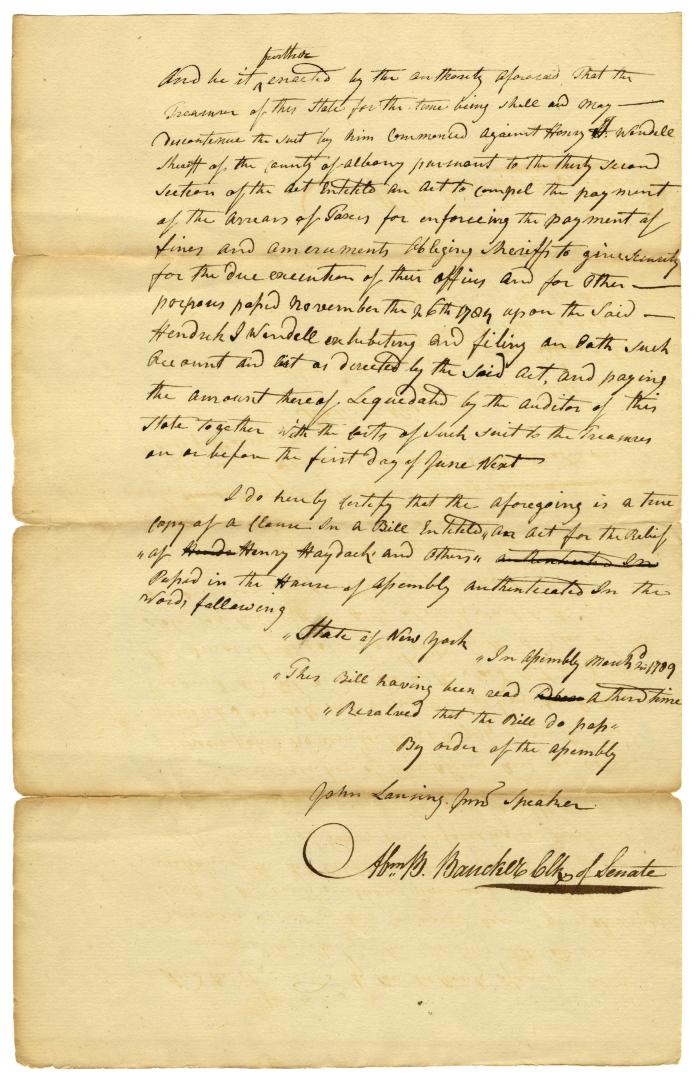 further
And be it enacted by the authority aforesaid That the
Treasurer of this State for the time being shall and may —
discontinue the suit by him Commenced against Henry Wendell
Sheriff of the County of Albany pursuant to the thirty second
Section of the Act Entitled an Act to Compel the payment
of the Arrears of Taxes for enforceing the payment of
fines and amercments Obliging Sheriffs to give Security
for the due execution of their offices and for Other —
porposes passed November the 26th 1784 upon the Said —
Hendrick J Wendell exhibeting and filing on Oath such
Account and list as directed by the Said Act, and paying
the amount thereof Lequedated by the auditor of this
State together with the Costs of Such Suit to the Treasurer
on or before the first day of June Next
I do hereby Certify that the aforegoing is a true
Copy of a Clause In a Bill Entitled „An Act for the Relief
„of Henry Haydock and others„
Passed in the House of Assembly authenticated In the
Words following
„State of New York
„In Assembly March 2d 1789
„This Bill having been read a third time
„Resolved that the Bill do pass„
By order of the Assembly
John Lansing Junr Speaker
Abm B. Bancker Clk of Senate